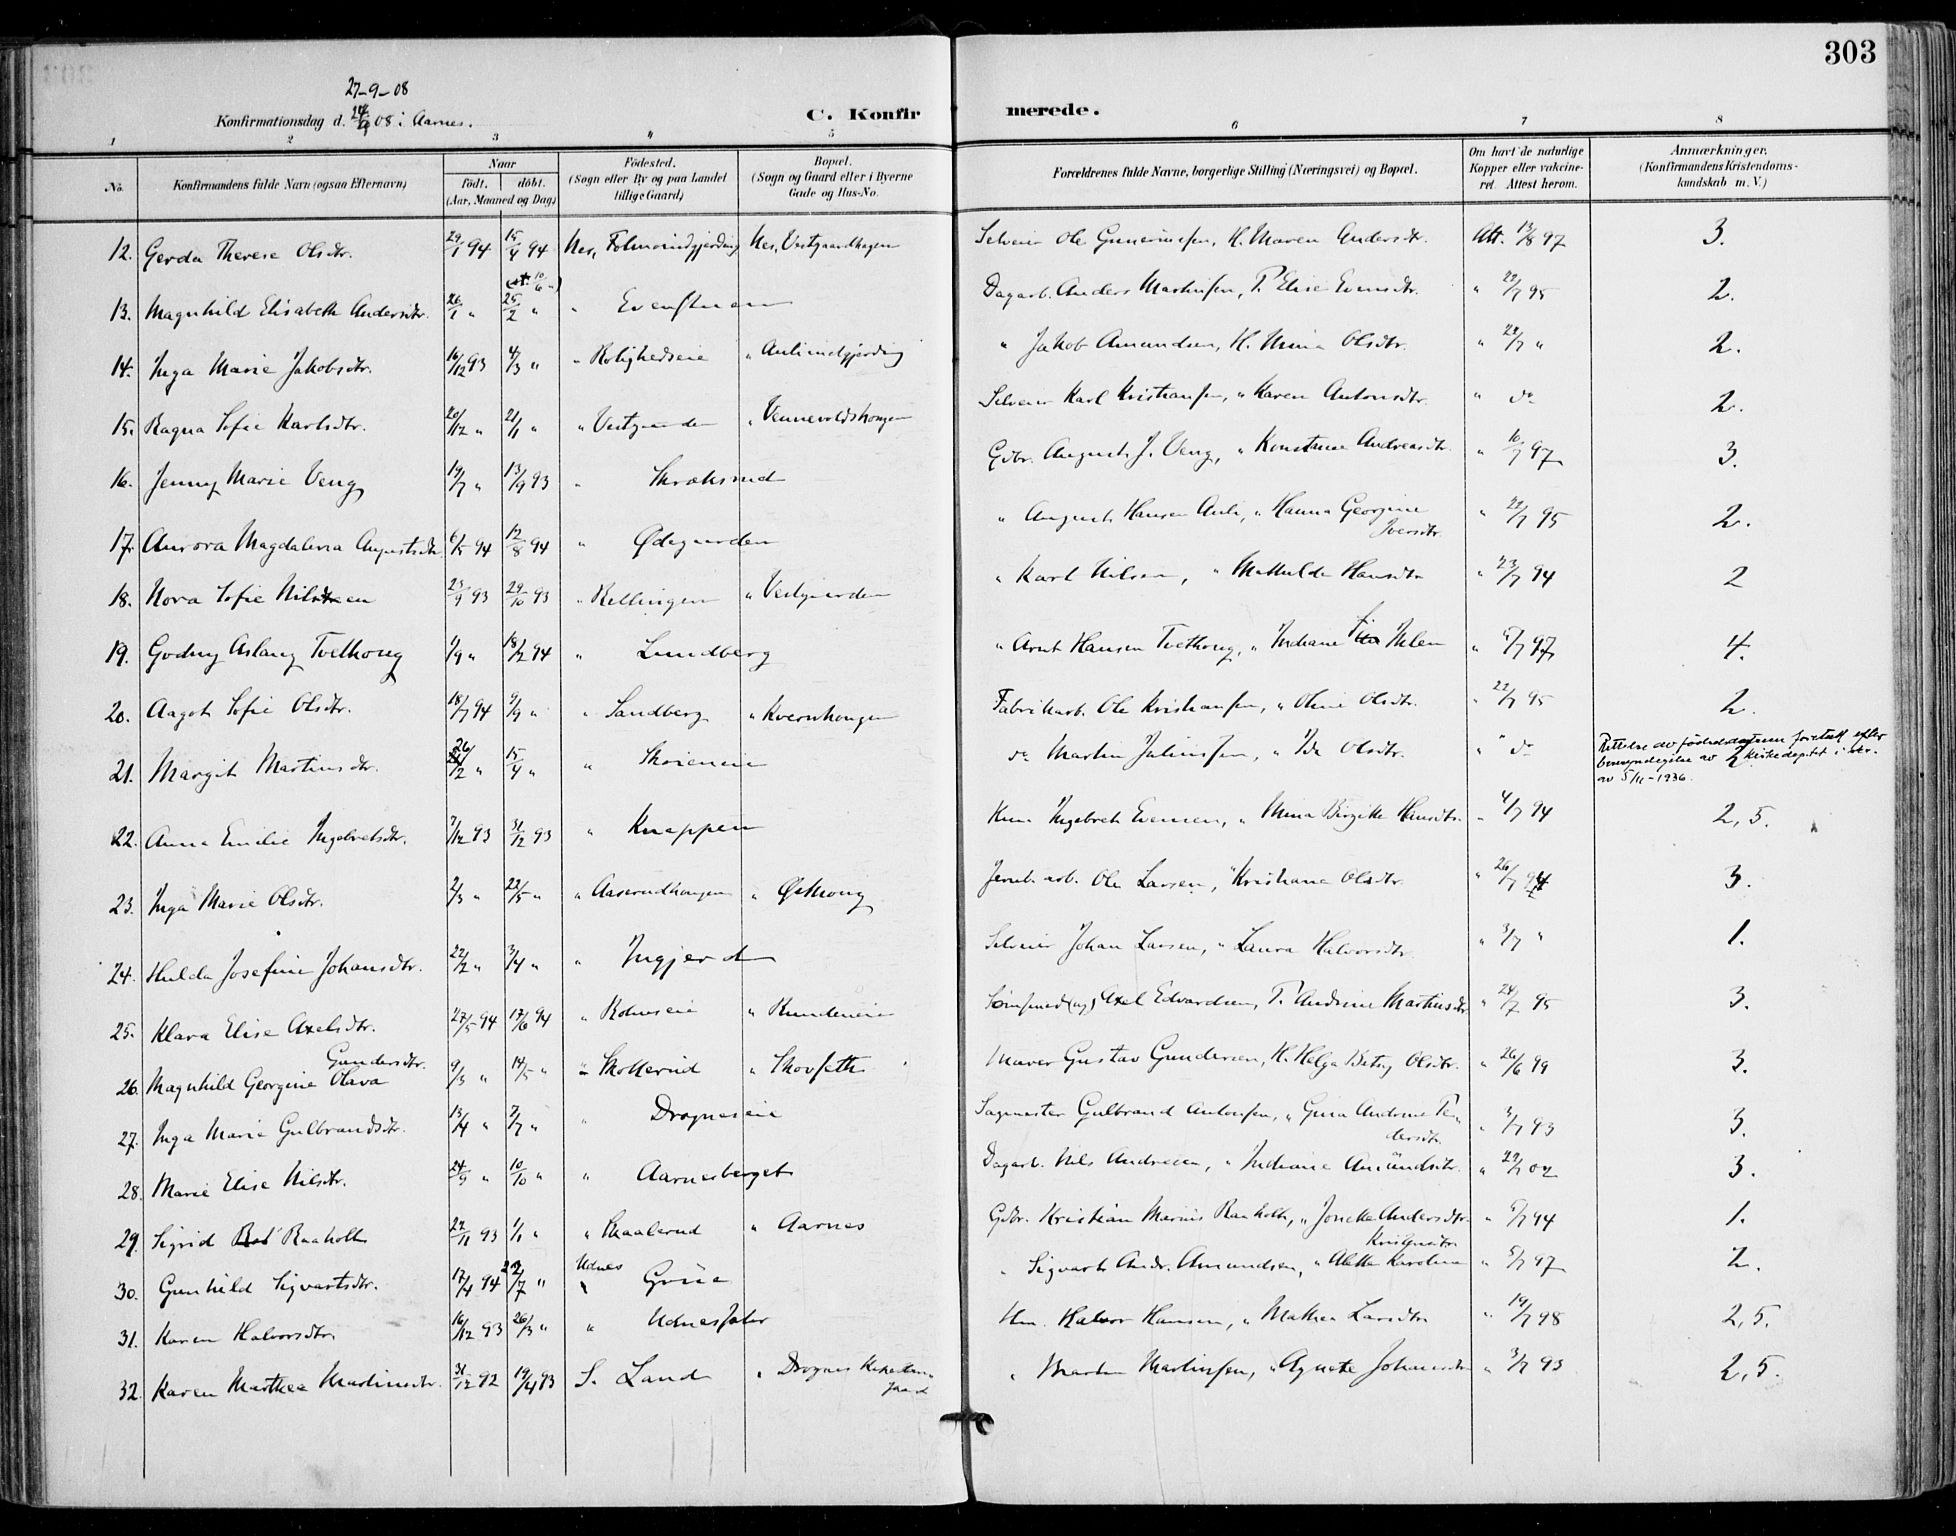 303
27-9-08
Konfirmationsdag d. 08 i Aarnes.
C. Konfirmerede.
1 2 3 " 5 6 7 8
No. Konfirmandens fulde Navn (ogsaa Efternavn) Naar födt. döbt. (Aar, Maaned og Dag) Födested. (Sogn eller By og paa Landet tillige Gaard) Bopæl. (Sogn og Gaard eller i Byerne Gade og Hus-No. Forældrenes fulde Navne, borgerlige Stilling (Næringsvei) og Bopæl. Om havt de naturlige Kopper eller vakcineret. Attest herom. Anmærkninger. (Konfirmandens Kristendomskundskab m. V.)
12. Gerda Therese Olsdtr. 29/1 94 15/4 94 Nes, Nes, Vestgaardhagen Selveier Ole H. Maren Andersdtr. Att. 13/8 97 3.
13. Magnhild Elisabeth Andersdtr. 26/1 " 25/2 " " Dagarb. Anders Martinsen, F. Elise Evensdtr. " 22/7 95 2.
14. Inga Marie Jakobsdtr. 16/12 93 4/3 " " Rolighedseie " " Jakob Amundsen, H. Mina Olsdtr. " 22/7 " 2.
15. Ragna Sofie Karlsdtr. 20/12 " 21/1 " " Vestgaarden " Vennevoldshougen Selveier Karl Kristiansen, " Karen Antonsdtr. " do 2.
16. Jenny Marie Veng 19/7 " 13/9 93 " Gdbr. August J. Veng, " Konstanse Andreasdtr. " 16/7 97 3.
17. Aurora Magdalena Augustsdtr. 6/5 94 12/8 94 " Ødegaarden " August Hansen Auli, " Hanna Georgine Iversdtr. " 22/7 95 2.
18. Nora Sofie Nilsen 23/9 93 29/10 93 " Rellingen " Vestgaarden " Karl Nilsen, " Mathilde Hansdtr " 23/7 94 2
19. Godny Aslaug Tvethoug 1/9 " 18/2 94 " Lundberg " Arnt Hansen Tvethoug, " Indiane Ihlen " 97 4.
20. Aagot Sofie Olsdtr. 18/7 94 9/9 " " Sandberg " Kvernhougen Fabrikarb. Ole Kristiansen, " Oline Olsdtr. " 22/7 95 2.
21. Margit Martinsdtr. 26/2 " 15/4 " " Skoieneie do Martin Juliussen, " Ida Olsdtr. " " do 2
Rettelse av fødselsdatum foretatt efter
bemyndigelse av Kirkedeptet i skr.
av 5/11-1936.
22. Anna Emilie Ingebretsdtr. 7/12 93 31/12 93 " Knappen Hmd. Ingebret Evensen, " Mina Birgitte Hansdtr. " 4/7 94 2,5.
23. Inga Marie Olsdtr. 2/3 " 22/5 " " Aaserudhougen " Jernb. arb. Ole Larsen, " Kristiane Olsdtr. " 26/7 94 3.
24. Hulda Josefine Johansdtr. 22/2 " 3/4 " " Ingjerd Selveier Johan Larsen, " Laura Halvorsdtr. " 3/7 " 1.
25. Klara Elise Axelsdtr. 27/5 94 17/6 94 " " Axel Edvardsen, F. Andrine Martinsdtr " 24/7 95 3.
26. Magnhild Georgine Olava Gundersdtr. 9/3 " 14/5 " " Skollerud " Murer Gustav Gundersen, H. Helga Betsy Olsdtr. " 26/6 99 3.
27. Inga Marie Gulbrandsdtr. 13/4 " 7/7 " " Dragneseie Sagmester Gulbrand Antonsen, " Gina Andrine Pedersdtr. " 3/7 93 3.
28. Marie Elise Nilsdtr. 24/9 " 10/10 " " Aarnesberget Dagarb. Nils Andresen, " Indiane Amundsdtr. " 22/7 02 3.
29. Sigrid Raaholt 27/11 93 1/1 " " " Aarnes Gdbr. Kristian Marius Raaholt, " Andersdtr. " 5/7 94 1.
30. Gunhild Sigvartsdtr. 17/4 94 22/7 " Udnes " Grüe " Sigvart Andr. Amundsen, " Alette Karoline Kristiansdtr " 5/7 97 2.
31. Karen Halvorsdtr. 16/12 93 26/3 " " Hm. Halvor Hansen, " Mathea Larsdtr " 19/7 98 2,5.
32. Karen Mathea Martinsdtr. 31/12 92 19/4 93 S. Land " Dragnes " Martin Martinsen, " Agnete Johansdtr " 3/7 93 2,5.